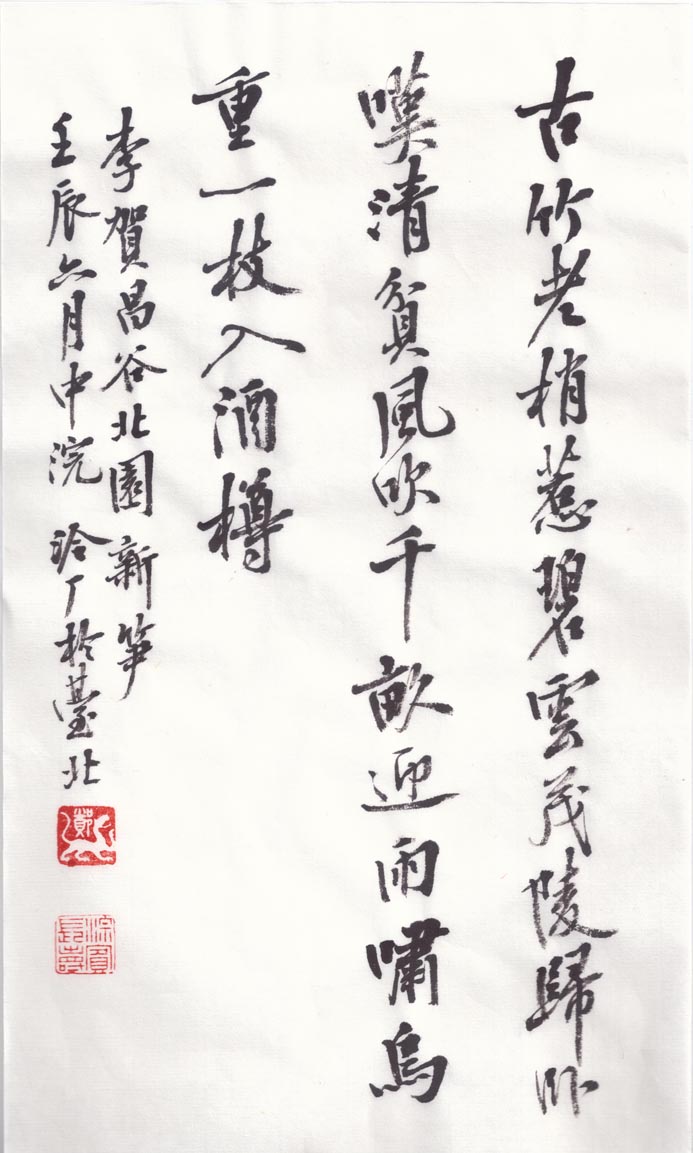 古竹老梢惹碧雲茂陵歸卧
嘆清貧風吹千畝迎雨嘯鳥
重一枝入酒樽
李賀昌谷北園新笋
壬辰六月中浣 於臺北